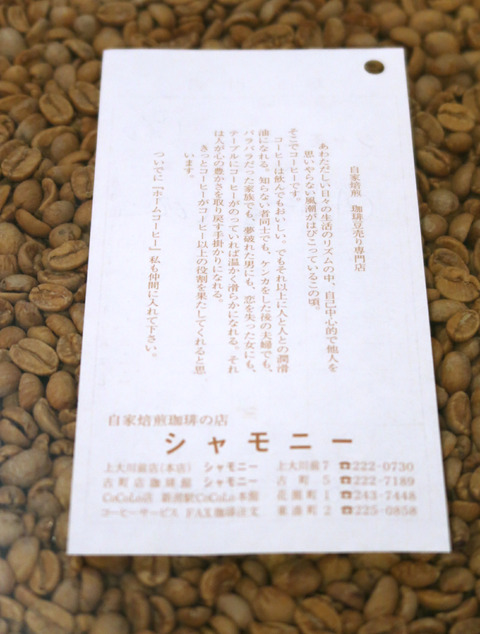 自家焙煎 珈琲豆売り専門店
あわただしい日々の生活のリズムの中、自己中心的で他人を
思いやらない風潮がはびこっているこの頃。
そこでコーヒーです。
コーヒーは飲んでもおいしい。でもそれ以上に人と人との潤滑
油になれる。知らない者同士でも、ケンカをした後の夫婦でも、
バラバラだった家族でも、夢破れた男にも、恋を失った女にも、
テーブルにコーヒーがのっていれば温かく滑らかになれる。それ
は人が心の豊かさを取り戻す手掛かりになれる。
きっとコーヒーがコーヒー以上の役割を果たしてくれると思
います。
ついでに「ホームコーヒー」私も仲間に入れて下さい。
自家焙煎珈琲の店
シャモニー
上大川前店(本店) シャモニー 上大川前7 ☎222-0730
古町店珈琲館 シャモニー 古町5 ☎222-7189
CoCoLo店 新潟駅CoCoLo本館 花園町1 ☎243-7448
コーヒーサービス FAX珈琲注文 東湊町2 ☎225-0858